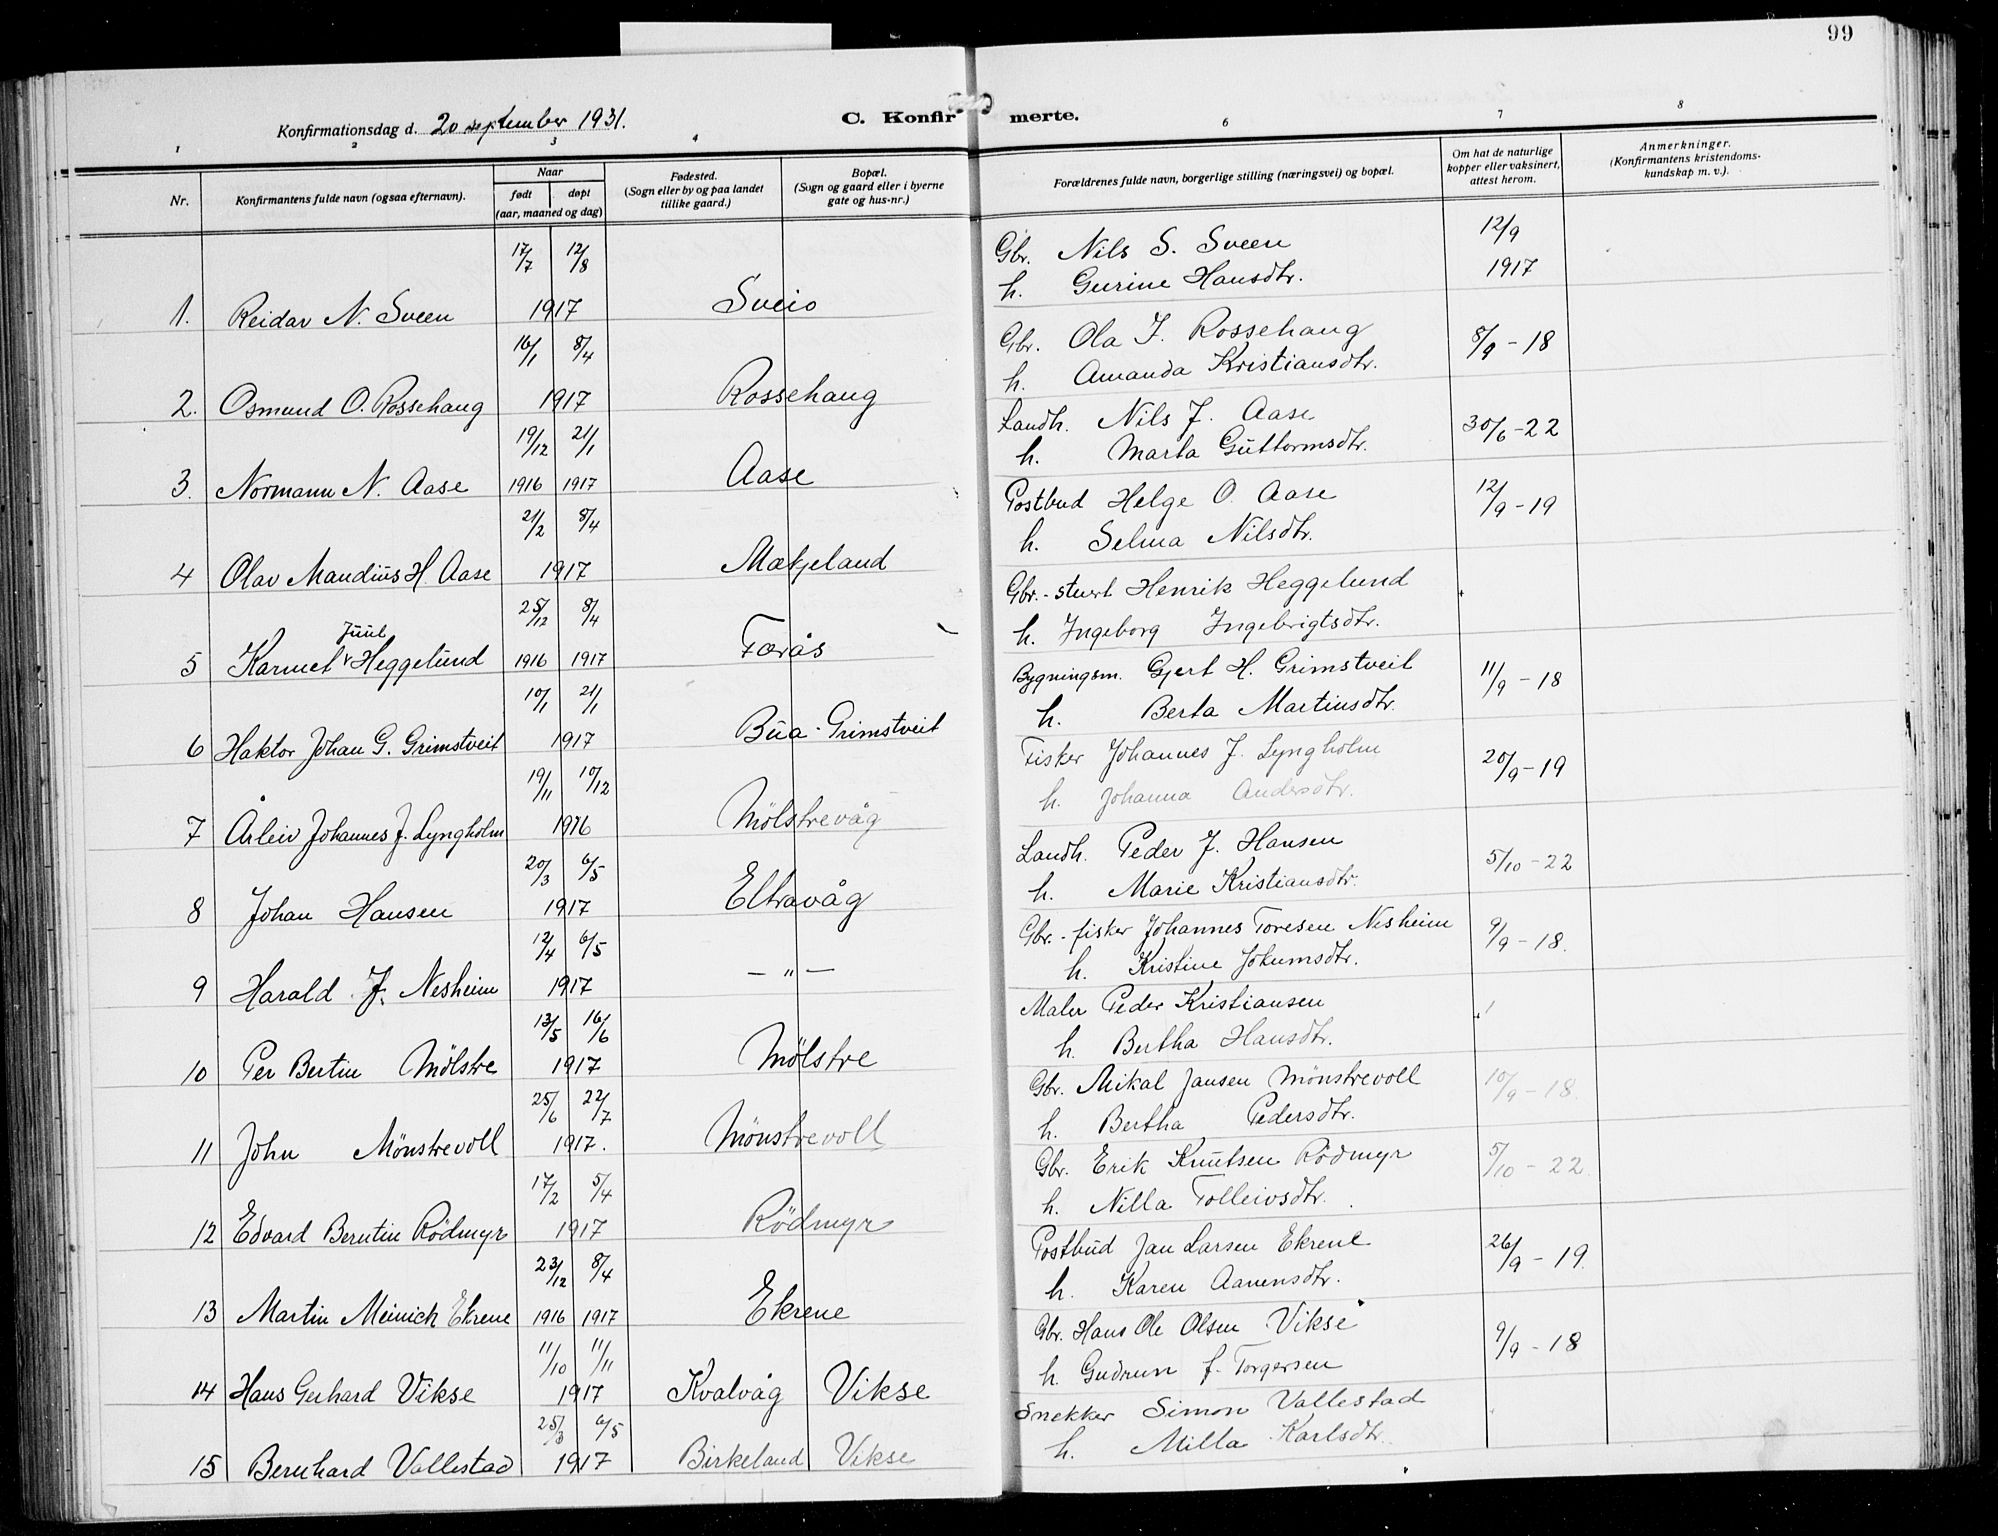 99
Konfirmationsdag d. 20 september 1931.
C. Konfirmerte.
1 2 3 4 6 7 8
Nr.
Konfirmantens fulde navn (ogsaa efternavn).
Naar
født døpt
(aar, maaned og dag)
Fødested.
(Sogn eller by og paa landet
tillike gaard.)
Bopæl.
(Sogn og gaard eller i byerne
gate og hus-nr.)
Forældrenes fulde navn, borgerlige stilling (næringsvei) og bopæl.
Om hat de naturlige
kopper eller vaksinert,
attest herom.
Anmerkninger.
(Konfirmantens kristendoms-
kundskap m. v.).
17/7 12/8 Gbr. Nils S. Sveen 12/9
1. Reidar N. Sveen 1917 Sveio h. Gurine Hansdtr. 1917
16/1 8/4 Gbr. Ola J. Rossehaug 8/9 - 18
2. Osmund O. Rossehaug 1917 Rossehaug h. Amanda Kristiansdtr.
19/12 21/1 Landh. Nils J. Aase 30/6 - 22
3. Normann N. Aase 1916 1917 Aase h. Marta Guttormsdtr.
21/2 8/4 Postbud Helge O. Aase 12/9 - 19
4 Olav Mandius H. Aase 1917 Mækjeland h. Selma Nilsdtr.
25/12 8/4 Gbr. - stuert Henrik Heggelund
5 Karmel Juul Heggelund 1916 1917 Færås h. Ingeborg Ingebrigtsdtr.
10/1 21/1 Bygningsm. Gjert H. Grimstveit 11/9 - 18
6 Haktor Johan G. Grimstveit 1917 Bua - Grimstveit h. Berta Martinsdtr.
19/11 10/12 Fisker Johannes J. Lyngholm 20/9 - 19
7 Årleiv Johannes J. Lyngholm 1916 Mölstrevåg h. Johanna Andersdtr.
20/3 6/5 Landh. Peder J. Hansen 5/10 - 22
8 Johan Hansen 1917 Eltravåg h. Marie Kristiansdtr.
12/4 6/5 Gbr. - fisker Johannes Toresen Nesheim 9/9 - 18.
9 Harald J. Nesheim 1917 — " — h. Kristine Jokumsdtr.
13/5 16/6 Maler Peder Kristiansen
10 Per Bertin Mölstre 1917 Mölstre h. Bertha Hansdtr.
25/6 22/7 Gbr. Mikal Jansen Mönstrevoll 10/9 - 18.
11 John Mönstrevoll 1917. Mönstrevoll h. Bertha Pedersdtr.
17/2 5/4 Gbr. Erik Knutsen Rödmyr 5/10 - 22
12 Edvard Berntin Rödmyr 1917 Rödmyr h. Nilla Tolleivsdtr.
23/12 8/4 Postbud Jan Larsen Ekrene 26/9 - 19.
13 Martin Meinich Ekrene 1916 1917 Ekrene h. Karen Aanensdtr.
11/10 11/11 Gbr. Hans Ole Olsen Vikse 9/9 - 18
14 Hans Gerhard Vikse 1917 Kvalvåg Vikse h. Gudrun f. Torgersen
25/3 6/5 Snekker Simon Vallestad
15 Bernhard Vallestad 1917 Birkeland Vikse h. Milla Karlsdtr.